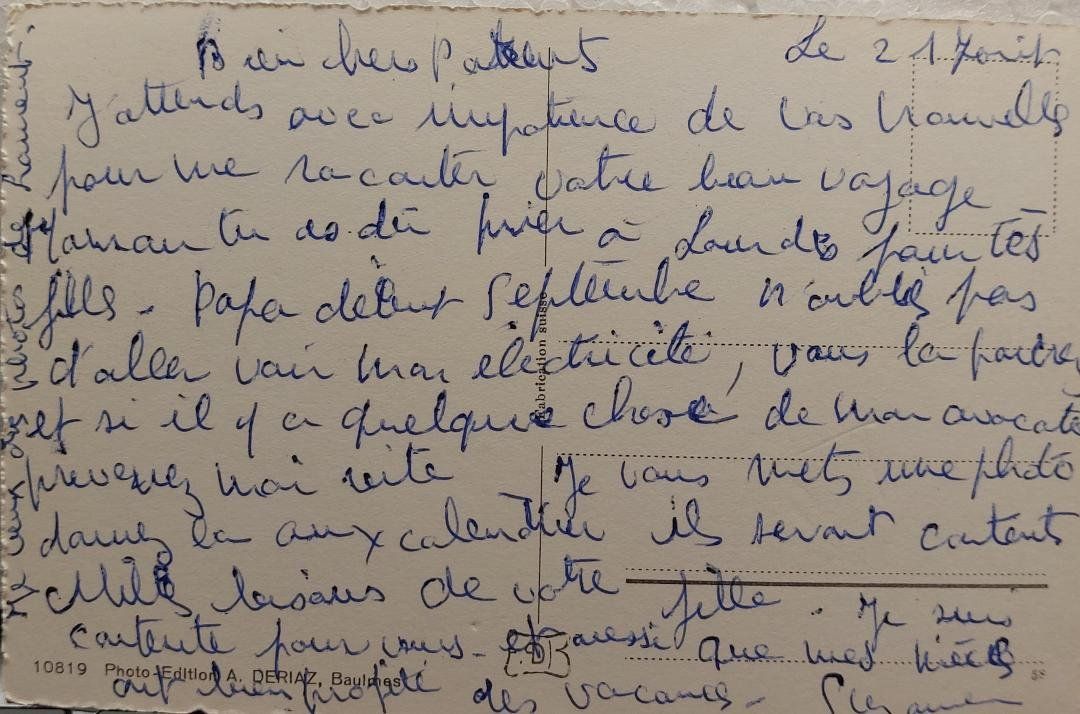 Bien chers Parents
Le 21 Août
J'attends avec impatience de vos nouvelle
pour me raconter votre beau voyage
Maman tu as dû prier à Lourdes pour tes
fille - Papa début Septembre n'oublie pas
d'aller voir mon électricité, vous la
et si il y a quelque chose de mon avocate
prevenez moi vite Je vous mets une photo
donnez la aux calendrier ils seront contents
Mille baisons de votre fille. Je suis
contente pour vous - et aussi que mes nièces
ont bien profité des vacances -
Fabrication suisse
10819 Photo-Edition A. DERIAZ, Baulmes